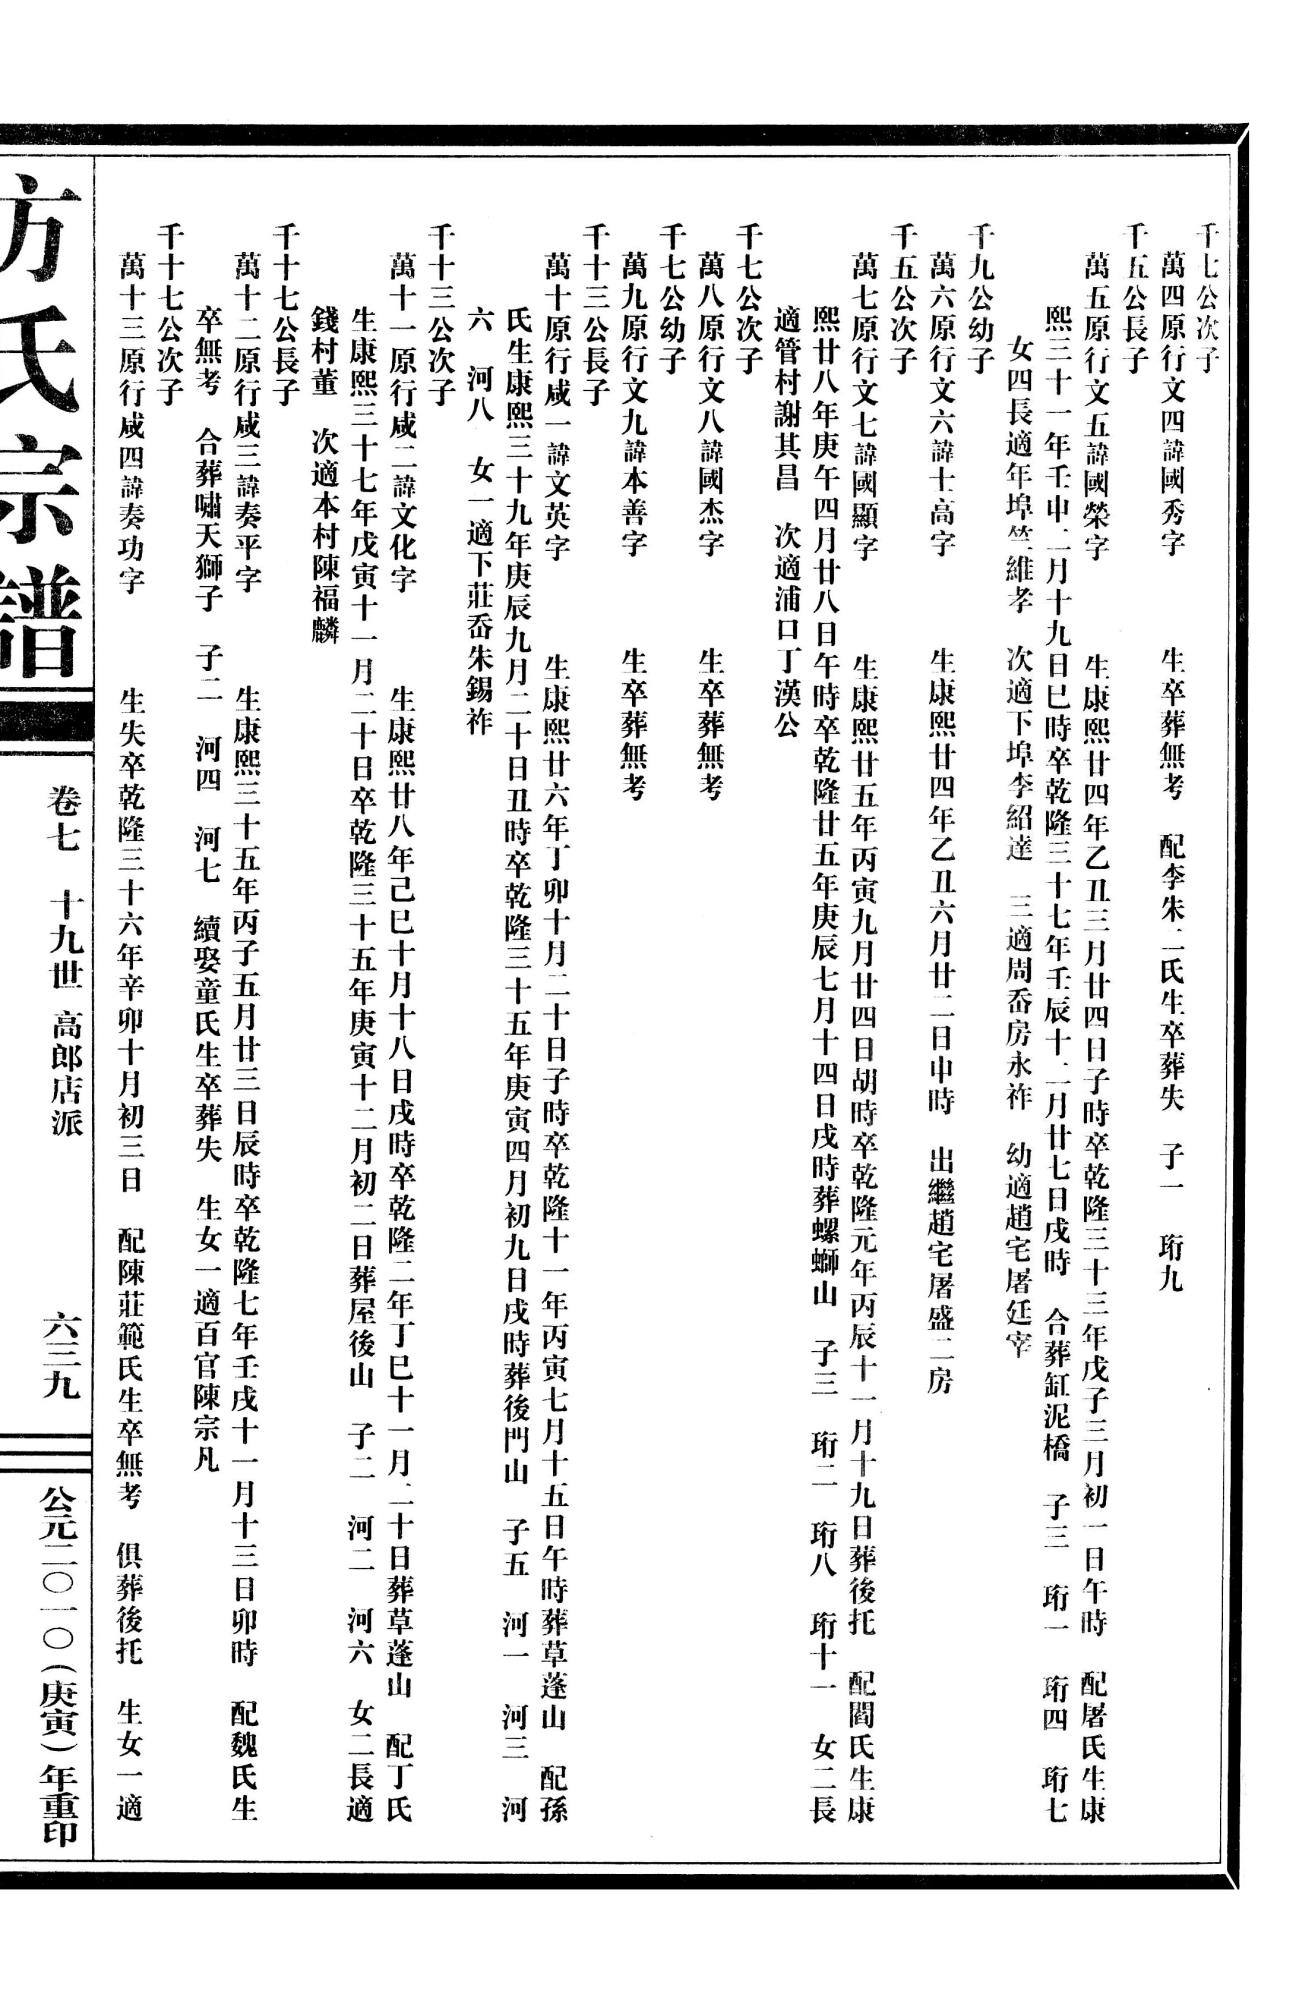 千七公次子
萬四原行文四諱國秀字　生卒葬無考　配李朱二氏生卒葬失　子一　珩九
千五公長子
萬五原行文五諱國榮字　生康熙廿四年乙丑三月廿四日子時卒乾隆三十三年戊子三月初一日午時　配屠氏生康
熙三十一年壬申二月十九日巳時卒乾隆三十七年壬辰十二月廿七日戌時　合葬缸泥橋　子三　珩一　珩四　珩七
女四長適年埠竺維孝　次適下埠李紹達　三適周岙房永祚　幼適趙宅屠廷宰
千九公幼子
萬六原行文六諱士高字　生康熙廿四年乙丑六月廿二日申時　出繼趙宅屠盛二房
千五公次子
萬七原行文七諱國顯字　生康熙廿五年丙寅九月廿四日胡時卒乾隆元年丙辰十一月十九日葬後托　配閻氏生康
熙廿八年庚午四月廿八日午時卒乾隆廿五年庚辰七月十四日戌時葬螺螄山　子三　珩二　珩八　珩十一　女二長
適管村謝其昌　次適浦口丁漢公
千七公次子
萬八原行文八諱國杰字　生卒葬無考
千七公幼子
萬九原行文九諱本善字　生卒葬無考
千十三公長子
萬十原行咸一諱文英字　生康熙廿六年丁卯十月二十日子時卒乾隆十一年丙寅七月十五日午時葬草蓬山　配孫
氏生康熙三十九年庚辰九月二十日丑時卒乾隆三十五年庚寅四月初九日戌時葬後門山　子五　河一　河三　河
六　河八　女一適下莊岙朱錫祚
千十三公次子
萬十一原行咸二諱文化字　生康熙廿八年己巳十月十八日戌時卒乾隆二年丁巳十一月二十日葬草蓬山　配丁氏
生康熙三十七年戊寅十一月二十日卒乾隆三十五年庚寅十二月初二日葬屋後山　子二　河二　河六　女二長適
錢村董　次適本村陳福麟
千十七公長子
萬十二原行咸三諱奏平字　生康熙三十五年丙子五月廿三日辰時卒乾隆七年壬戌十一月十三日卯時　配魏氏生
卒無考　合葬嘯天獅子　子二　河四　河七　續娶童氏生卒葬失　生女一適百官陳宗凡
千十七公次子
萬十三原行咸四諱奏功字　生失卒乾隆三十六年辛卯十月初三日　配陳莊範氏生卒無考　俱葬後托　生女一適
方氏宗譜
卷七　十九世　高郎店派
六三九
公元二〇一〇（庚寅）年重印